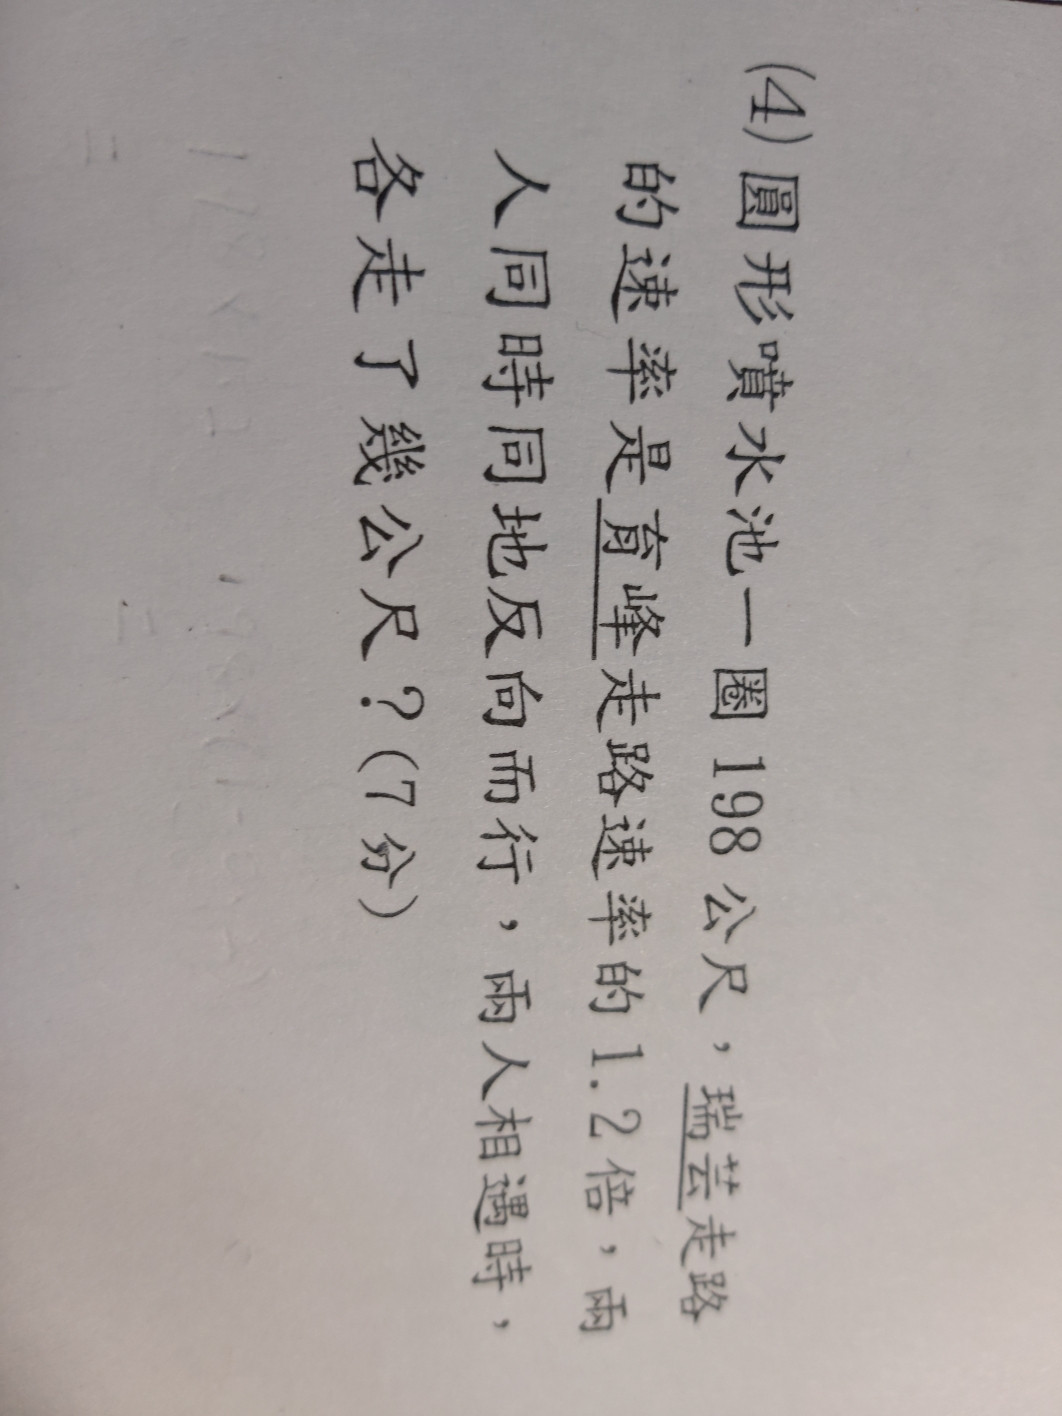 (4)圓形噴水池一圈198公尺，瑞芸走路
的速率是育峰走路速率的1.2倍，兩
人同時同地反向而行，兩人相遇時，
各走了幾公尺？(7分)